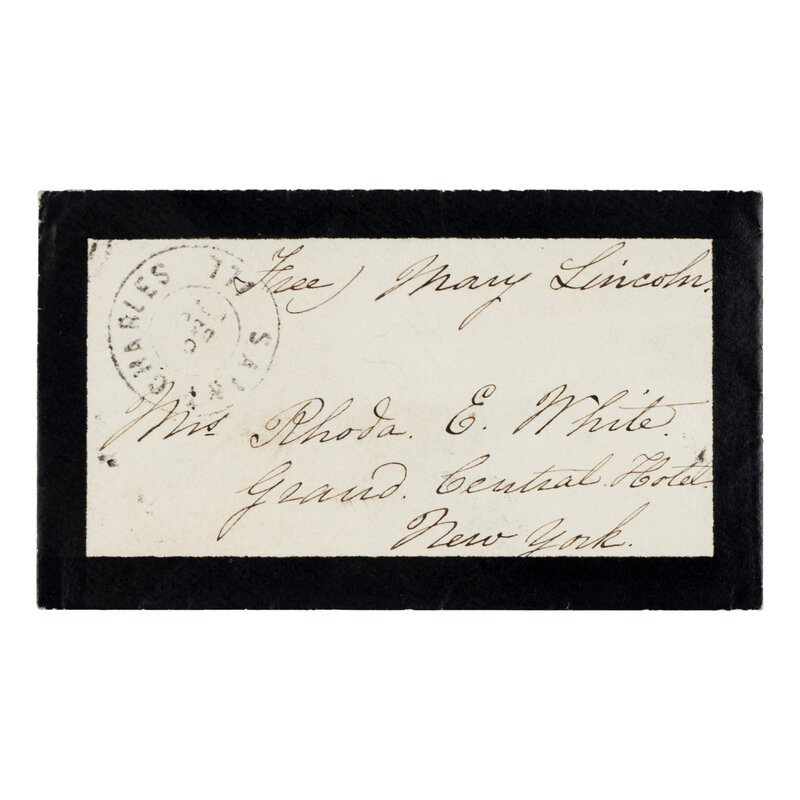 SAINT CHARLES ILL
DEC
Free Mary Lincoln.
Mrs Rhoda. E. White.
Grand. Central. Hotel.
New York.